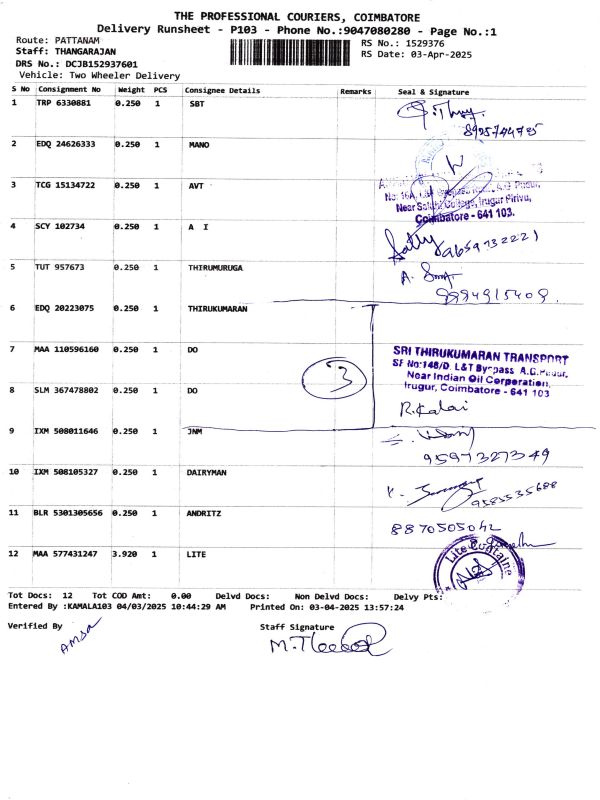 THE PROFESSIONAL COURIERS, COIMBATORE
Delivery Runsheet - P103 - Phone No.:9047080280 - Page No.:1
Route: PATTANAM
RS No.: 1529376
Staff: THANGARAJAN
RS Date: 03-Apr-2025
DRS No.: DCJB152937601
Vehicle: Two Wheeler Delivery
S No Consignment No Weight PCS Consignee Details Remarks Seal & Signature
1 TRP 6330881 0.250 1 SBT
2 EDQ 24626333 0.250 1 MANO
3 TCG 15134722 0.250 1 AVT
Near Sakthi College, Irugur Pirivu,
Coimbatore - 641 103.
4 SCY 102734 0.250 1 A I
9659732221
5 TUT 957673 0.250 1 THIRUMURUGA
9994915409
6 EDQ 20223075 0.250 1 THIRUKUMARAN
7 MAA 110596160 0.250 1 DO
SRI THIRUKUMARAN TRANSPORT
SF No:148/D, L&T Bypass A.G.Pudur,
3
Near Indian Oil Corporation,
8 SLM 367478802 0.250 1 DO
Irugur, Coimbatore - 641 103
R.Kalai
9 IXM 508011646 0.250 1 JNM
9597327349
10 IXM 508105327 0.250 1 DAIRYMAN
9585535688
11 BLR 5301305656 0.250 1 ANDRITZ
8870505042
12 MAA 577431247 3.920 1 LITE
Lite Containe
Tot Docs: 12 Tot COD Amt: 0.00 Delvd Docs: Non Delvd Docs: Delvy Pts:
Entered By :KAMALA103 04/03/2025 10:44:29 AM Printed On: 03-04-2025 13:57:24
Verified By Staff Signature
AMSA